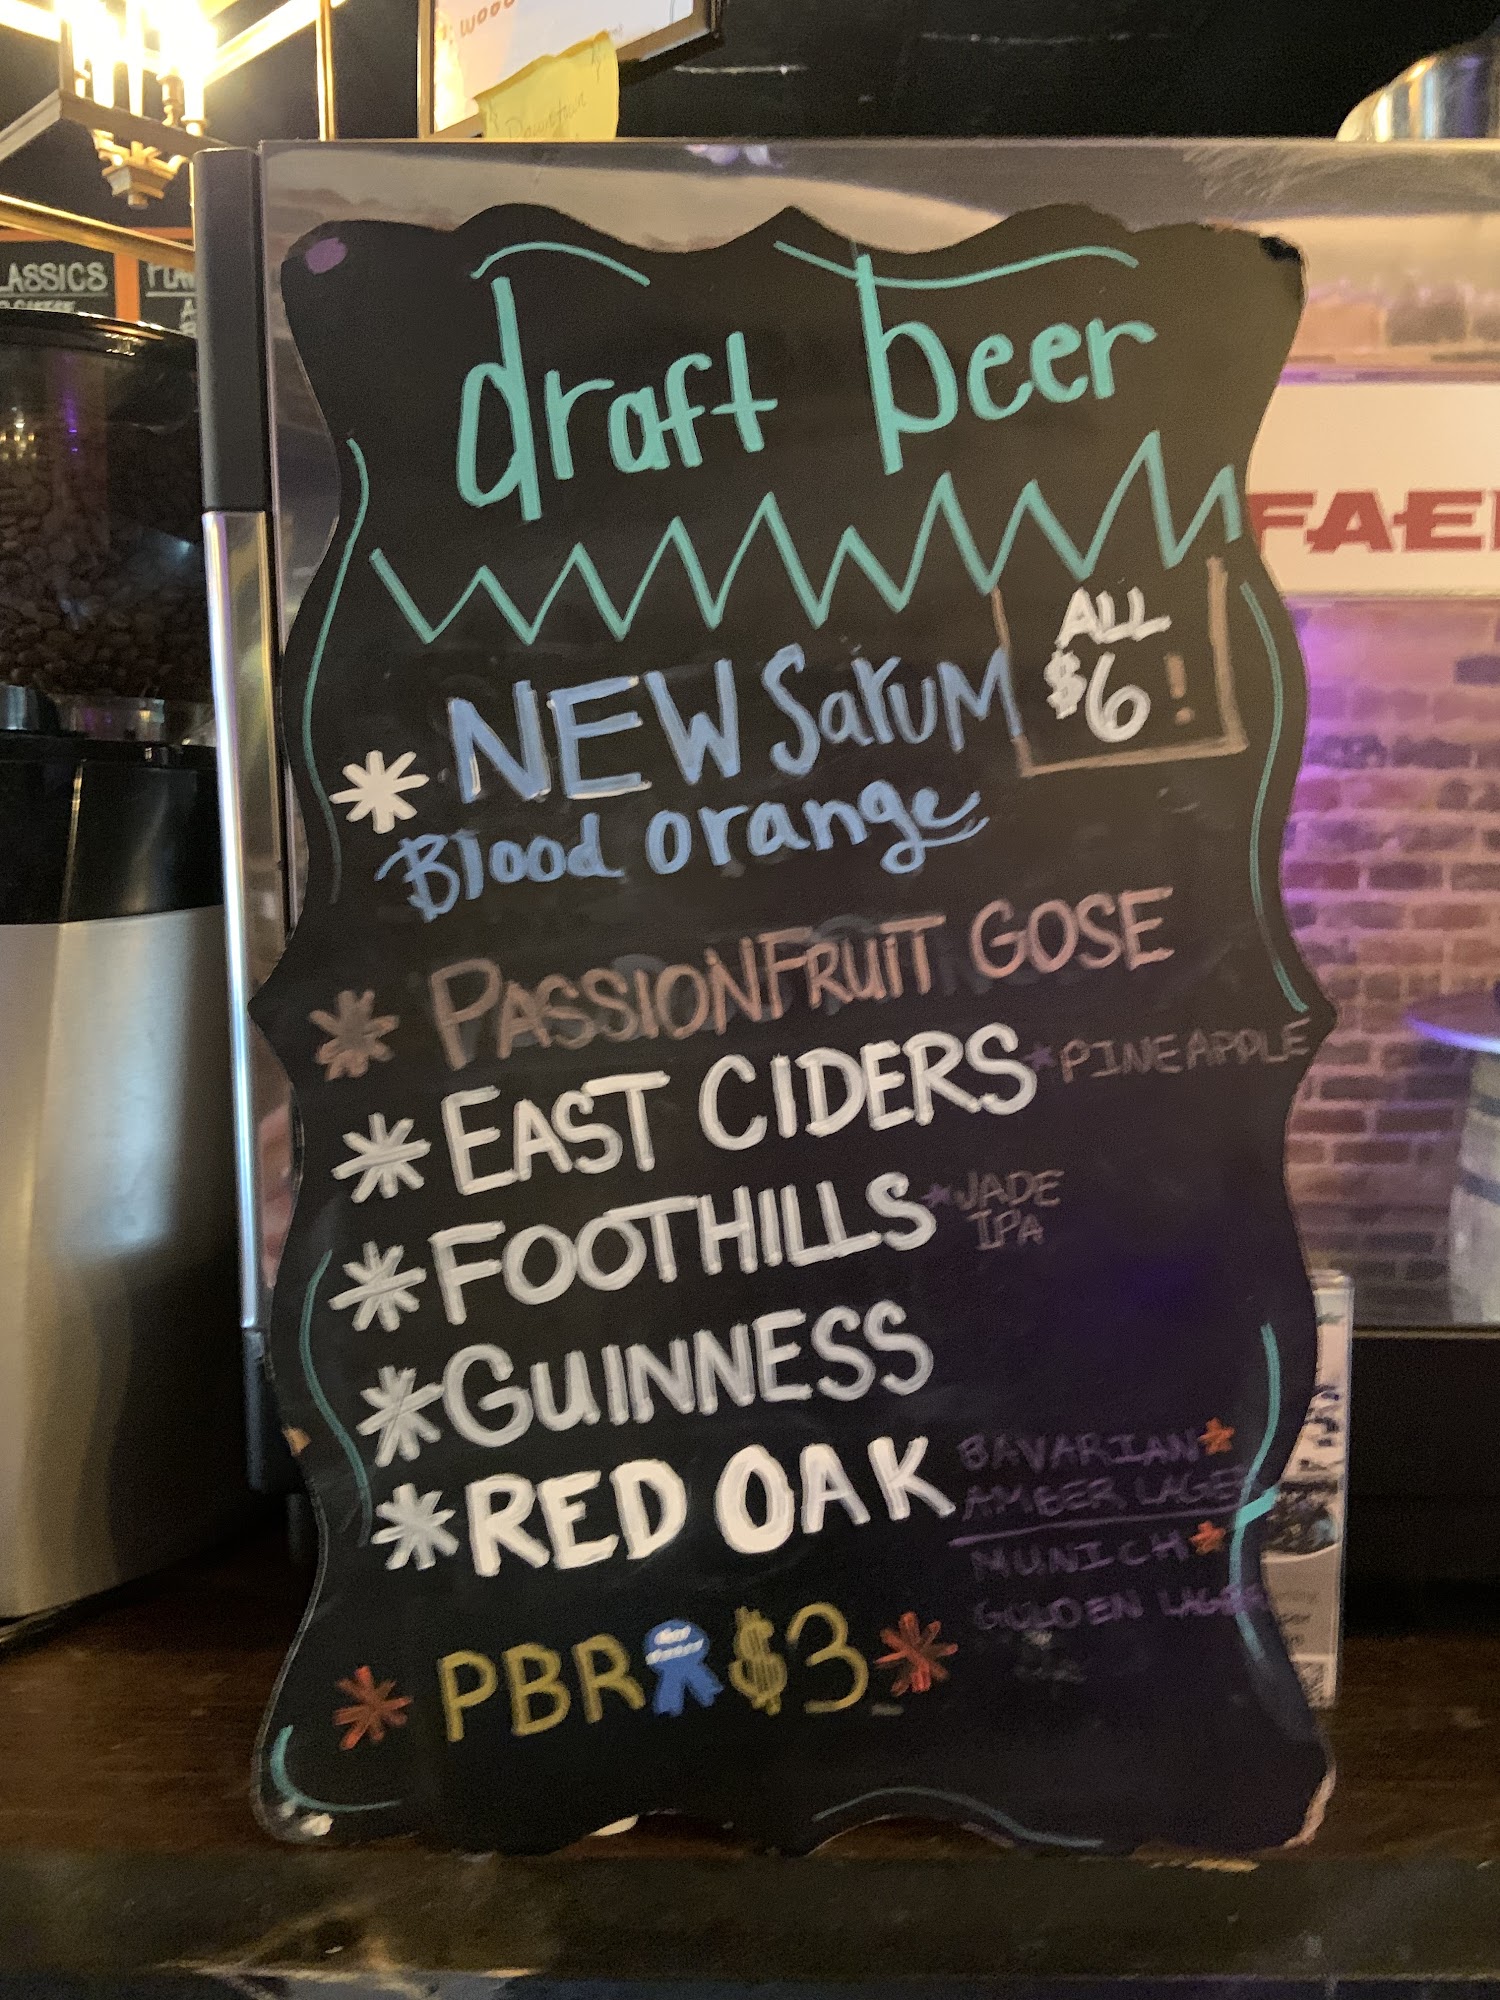 WOOD
Downtown
LASSICS
draft beer
ALL
$6!
* NEW Sarum
Blood orange
* PASSIONFRUIT GOSE
* EAST CIDERS * PINEAPPLE
* FOOTHILLS * JADE
IPA
* GUINNESS
* RED OAK
BAVARIAN *
AMBER LAGER
MUNICH *
GOLDEN LAGER
* PBR $3 *
FAE